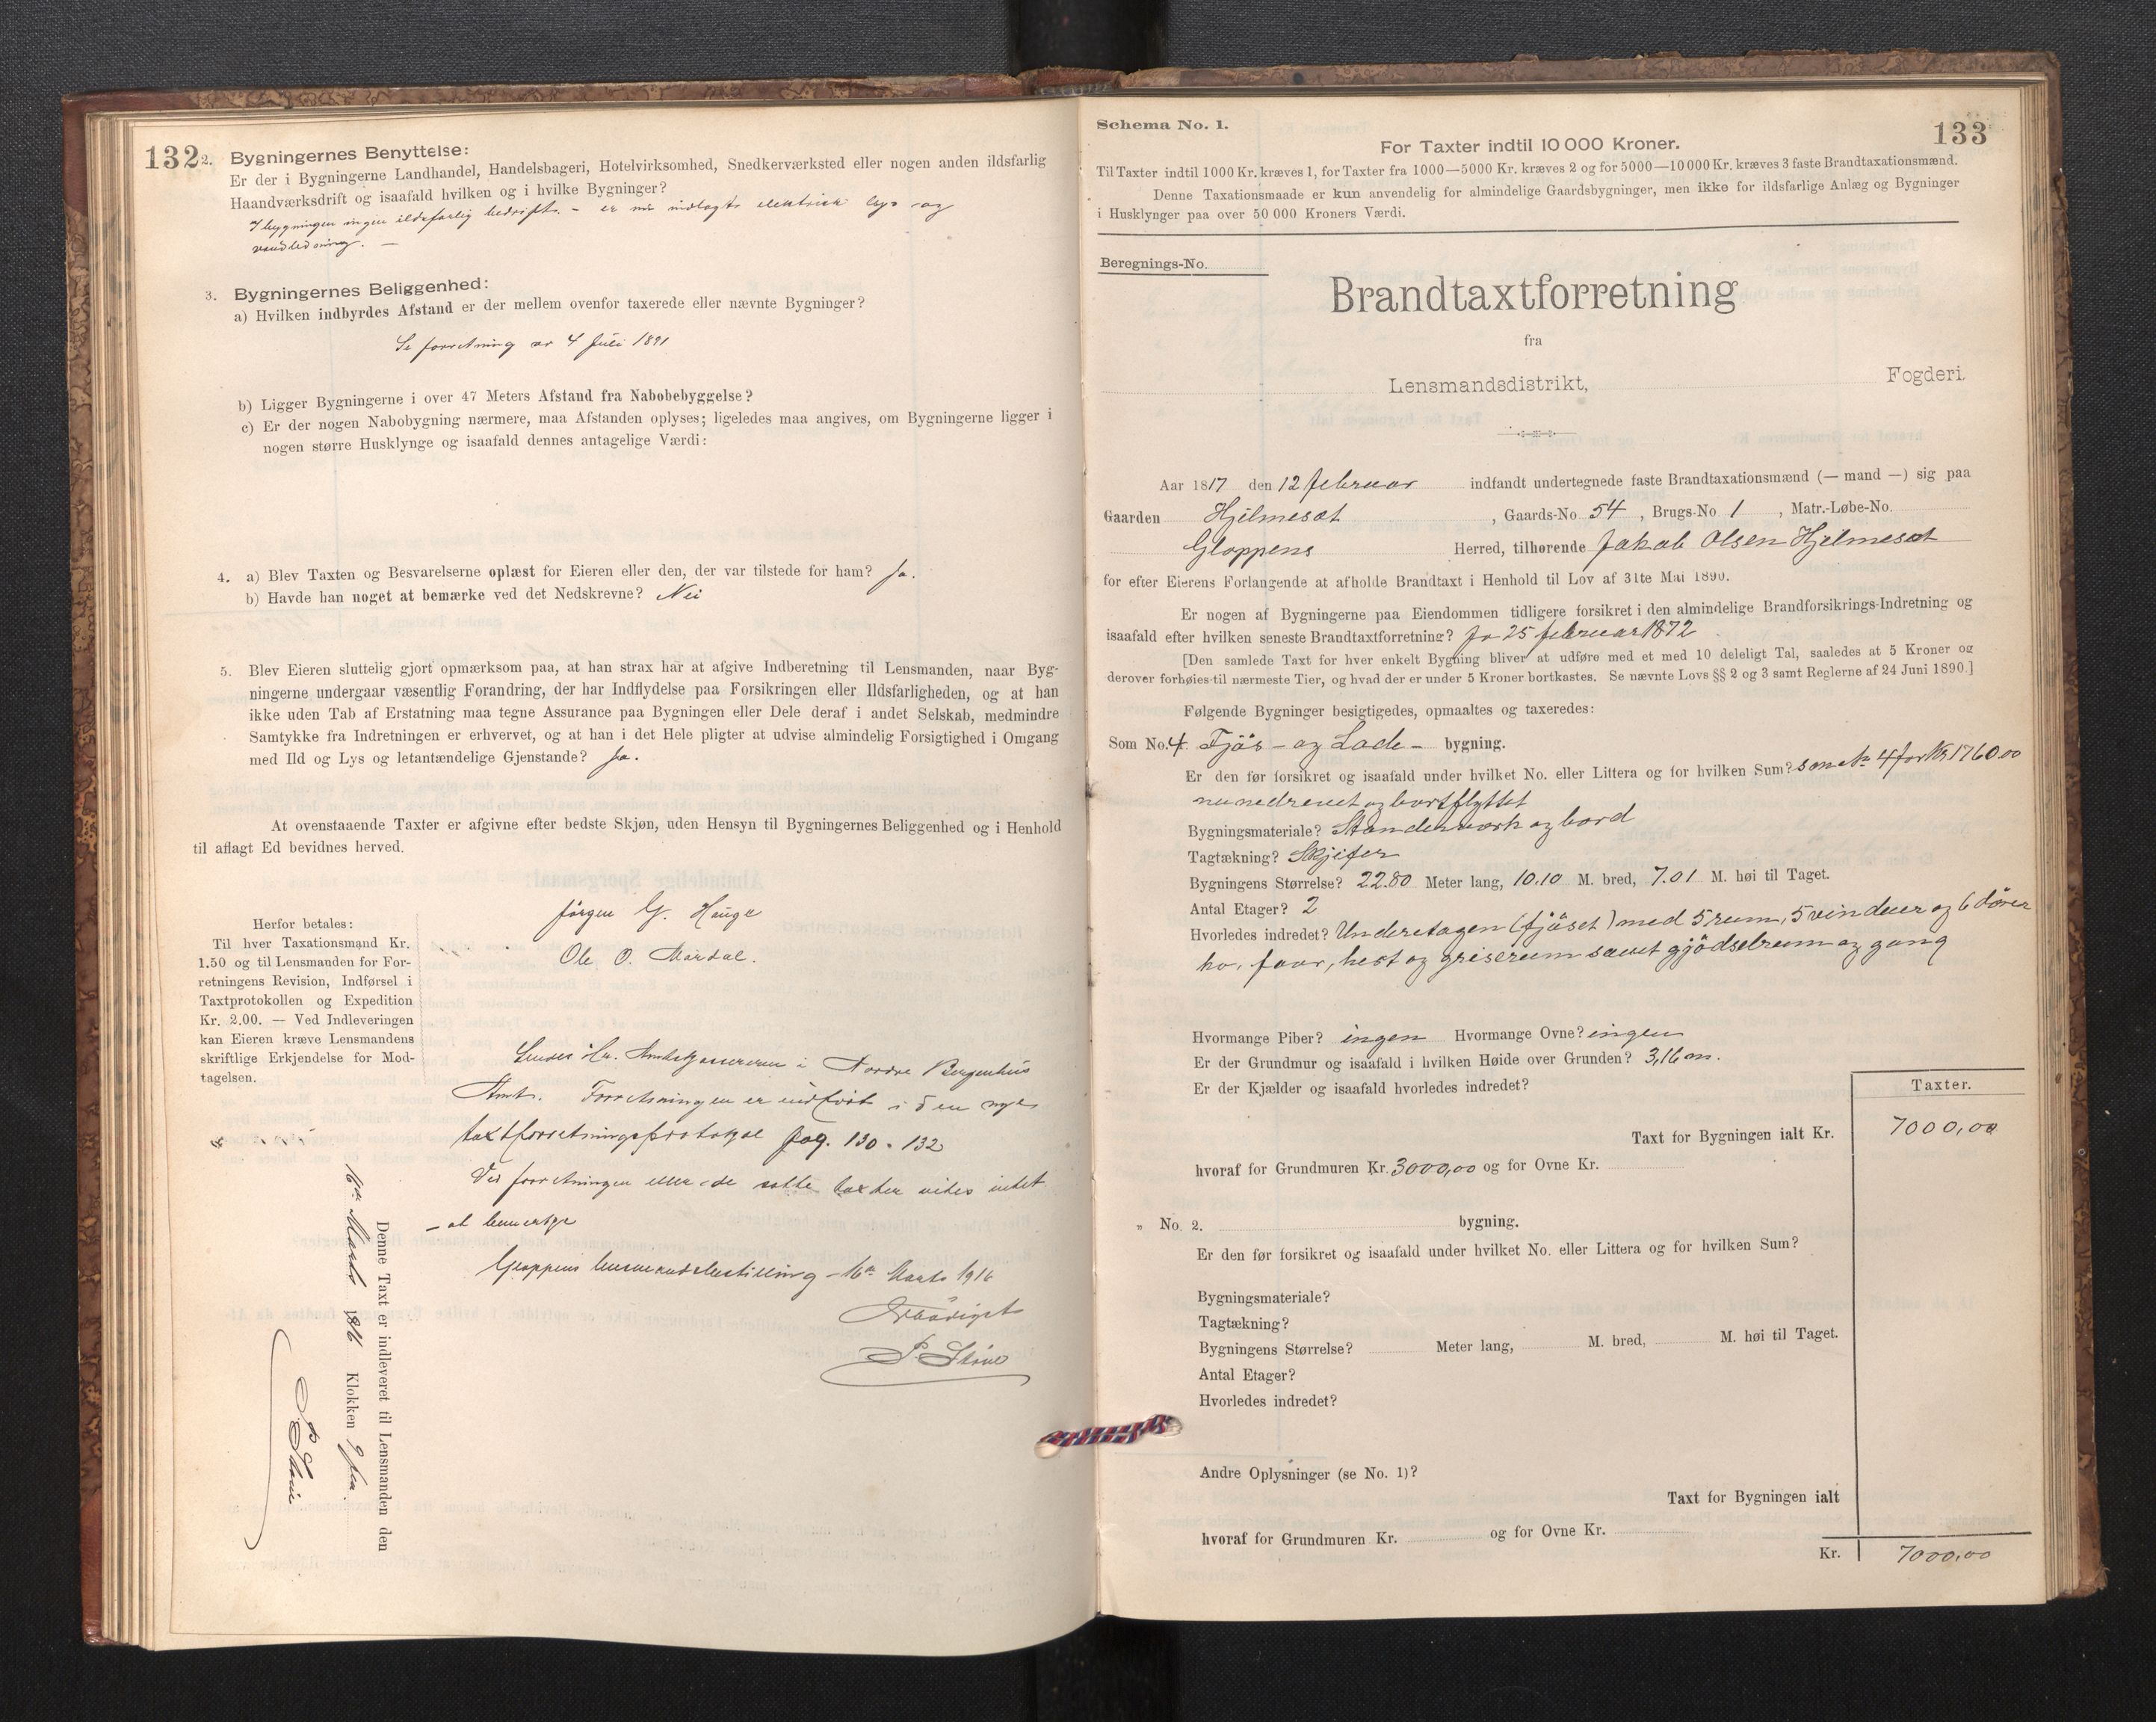 132
2. Bygningernes Benyttelse:
Er der i Bygningerne Landhandel, Handelsbageri, Hotelvirksomhed, Snedkerværksted eller nogen anden ildsfarlig
Haandværksdrift og isaafald hvilken og i hvilke Bygninger?
I bygningen ingen ildsfarlig bedrift. – er nu indlagt elektrisk lys og
vandledning. —
3. Bygningernes Beliggenhed:
a) Hvilken indbyrdes Afstand er der mellem ovenfor taxerede eller nævnte Bygninger?
Se forretning av 4 Juli 1891
b) Ligger Bygningerne i over 47 Meters Afstand fra Nabobebyggelse?
c) Er der nogen Nabobygning nærmere, maa Afstanden oplyses; ligeledes maa angives, om Bygningerne ligger i
nogen større Husklynge og isaafald dennes antagelige Værdi:
4. a) Blev Taxten og Besvarelserne oplæst for Eieren eller den, der var tilstede for ham? Ja.
b) Havde han noget at bemærke ved det Nedskrevne? Nei
5. Blev Eieren sluttelig gjort opmærksom paa, at han strax har at afgive Indberetning til Lensmanden, naar Byg-
ningerne undergaar væsentlig Forandring, der har Indflydelse paa Forsikringen eller Ildsfarligheden, og at han
ikke uden Tab af Erstatning maa tegne Assurance paa Bygningen eller Dele deraf i andet Selskab, medmindre
Samtykke fra Indretningen er erhvervet, og at han i det Hele pligter at udvise almindelig Forsigtighed i Omgang
med Ild og Lys og letantændelige Gjenstande? Ja.
At ovenstaaende Taxter er afgivne efter bedste Skjøn, uden Hensyn til Bygningernes Beliggenhed og i Henhold
til aflagt Ed bevidnes herved.
Jørgen G. Hauge
Ole O. Mardal.
Herfor betales:
Til hver Taxationsmand Kr.
1.50 og til Lensmanden for For-
retningens Revision, Indførsel i
Taxtprotokollen og Expedition
Kr. 2.00. — Ved Indleveringen
kan Eieren kræve Lensmandens
skriftlige Erkjendelse for Mod-
tagelsen.
Sendes Hr. Amtskassereren i Nordre Bergenhus
Amt. Forretningen er indført i den nye
taxtforretningsprotokol pag. 130 - 132
Ved forretningen eller de satte taxter vides intet
– at bemerke
Gloppens lensmandsbestilling – 16de Marts 1916
Ærbödigst
P. Skine
Denne Taxt er indleveret til Lensmanden den
16de Marts 1816 Klokken 9 fm.
133
Schema No. 1.
For Taxter indtil 10 000 Kroner.
Til Taxter indtil 1000 Kr. kræves 1, for Taxter fra 1000—5000 Kr. kræves 2 og for 5000—10 000 Kr. kræves 3 faste Brandtaxationsmænd.
Denne Taxationsmaade er kun anvendelig for almindelige Gaardsbygninger, men ikke for ildsfarlige Anlæg og Bygninger
i Husklynger paa over 50 000 Kroners Værdi.
Beregnings-No.
Brandtaxtforretning
fra
Lensmandsdistrikt, Fogderi.
Aar 1817 den 12 februar indfandt undertegnede faste Brandtaxationsmænd (— mand —) sig paa
Gaarden Hjelmesæt, Gaards-No. 54, Brugs-No. 1, Matr.-Løbe-No.
Gloppens Herred, tilhørende Jakob Olsen Hjelmesæt
for efter Eierens Forlangende at afholde Brandtaxt i Henhold til Lov af 31te Mai 1890.
Er nogen af Bygningerne paa Eiendommen tidligere forsikret i den almindelige Brandforsikrings-Indretning og
isaafald efter hvilken seneste Brandtaxtforretning? Ja 25 februar 1872
[Den samlede Taxt for hver enkelt Bygning bliver at udføre med et med 10 deleligt Tal, saaledes at 5 Kroner og
derover forhøies til nærmeste Tier, og hvad der er under 5 Kroner bortkastes. Se nævnte Lovs §§ 2 og 3 samt Reglerne af 24 Juni 1890.]
Følgende Bygninger besigtigedes, opmaaltes og taxeredes:
Som No. 4. Fjös – og Lade – bygning.
Er den før forsikret og isaafald under hvilket No. eller Littera og for hvilken Sum? som No 4 for Kr 1760.00
nu nedrevet og bortflyttet
Bygningsmateriale? Standerverk og bord
Tagtækning? Skjifer
Bygningens Størrelse? 22.80 Meter lang, 10.10 M. bred, 7.01 M. høi til Taget.
Antal Etager? 2
Hvorledes indredet? Underetagen (fjöset) med 5 rum, 5 vinduer og 6 dörer
ko, faar, hest og griserum samt gjödselrum og gang
Hvormange Piber? ingen Hvormange Ovne? ingen
Er der Grundmur og isaafald i hvilken Høide over Grunden? 3,16 m.
Er der Kjælder og isaafald hvorledes indredet?
Taxter.
Taxt for Bygningen ialt Kr. 7000,00
hvoraf for Grundmuren Kr. 3000,00 og for Ovne Kr.
„ No. 2. bygning.
Er den før forsikret og isaafald under hvilket No. eller Littera og for hvilken Sum?
Bygningsmateriale?
Tagtækning?
Bygningens Størrelse? Meter lang, M. bred, M. høi til Taget.
Antal Etager?
Hvorledes indredet?
Andre Oplysninger (se No. 1)?
Taxt for Bygningen ialt
hvoraf for Grundmuren Kr. og for Ovne Kr.
Kr. 7000,00